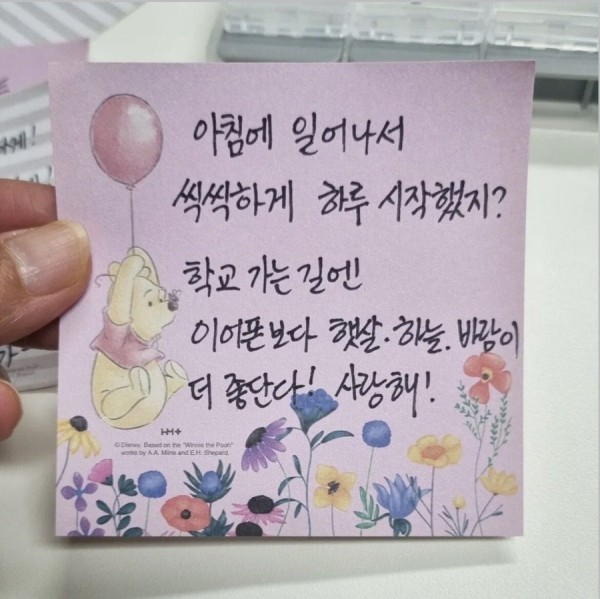 아침에 일어나서
씩씩하게 하루 시작했지?
학교 가는 길엔!
이어폰보다 햇살. 하늘. 바람이
더 좋단다! 사랑해!
© Disney. Based on the "Winnie the Pooh"
works by A.A. Milne and E.H. Shepard.